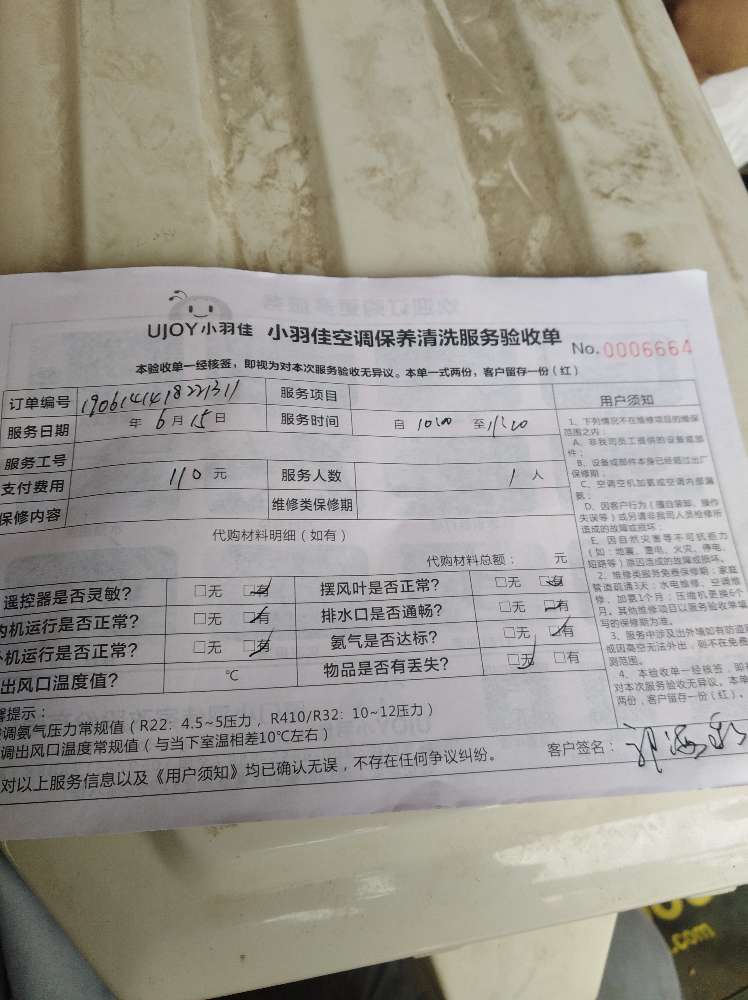 UJOY小羽佳 小羽佳空调保养清洗服务验收单 No.0006664
本验收单一经核签，即视为对本次服务验收无异议。本单一式两份，客户留存一份（红）
订单编号 1906141418221311 服务项目
服务日期 年6月15日 服务时间 自10:00 至11:20
服务工号
支付费用 110元 服务人数 1人
保修内容 维修类保修期
代购材料明细（如有）
代购材料总额： 元
遥控器是否灵敏？ □无 □有 摆风叶是否正常？ □无 □有
机运行是否正常？ □无 □有 排水口是否通畅？ □无 □有
机运行是否正常？ □无 □有 氨气是否达标？ □无 □有
出风口温度值？ ℃ 物品是否有丢失？ □无 □有
提示：
调氨气压力常规值（R22：4.5~5压力，R410/R32：10~12压力）
调出风口温度常规值（与当下室温相差10℃左右）
对以上服务信息以及《用户须知》均已确认无误，不存在任何争议纠纷。 客户签名：
用户须知
1、下列情况不在维修项目的维保
范围之内：
A、非我司员工提供的设备或部
件；
B、设备或部件本身已经超过出厂
保修期；
C、空调空机加氨或空调内部漏
氨；
D、因客户行为（擅自装卸、操作
失误等）或另请非我司人员检修所
造成的故障或损坏；
E、因自然灾害等不可抗拒力
（如：地震、雷电、火灾、停电、
短路等）原因造成的故障或损坏。
2、维修类服务免费保修期：家庭
管道疏通3天；水电维修、空调维
修、加氨1个月；压缩机更换6个
月。其他维修项目以服务验收单填
写的保修期为准。
3、服务中涉及出外墙如有防盗
或因高空无法外出，则不在免费
测范围。
4、本验收单一经核签，即
对本次服务验收无异议。本单
两份，客户留存一份（红）。
.com